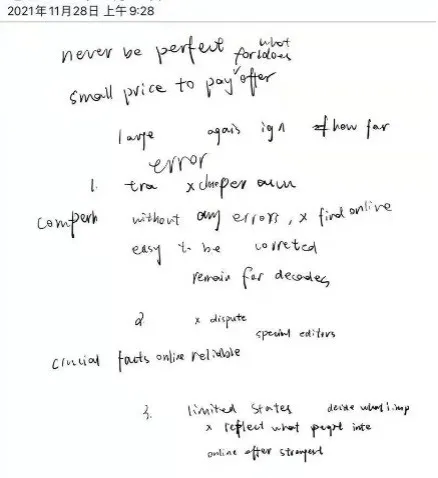 2021年11月28日 上午9:28
never be perfect what
for does
small price to pay offer
large agais ign how far
error
1. tra x cheper own
Comperh without any errors, x find online
easy to be correted
remain for decades
2 x dispute
special editors
crucial facts online reliable
3. limited states decide what imp
x reflect what peopl inte
online offer strongest